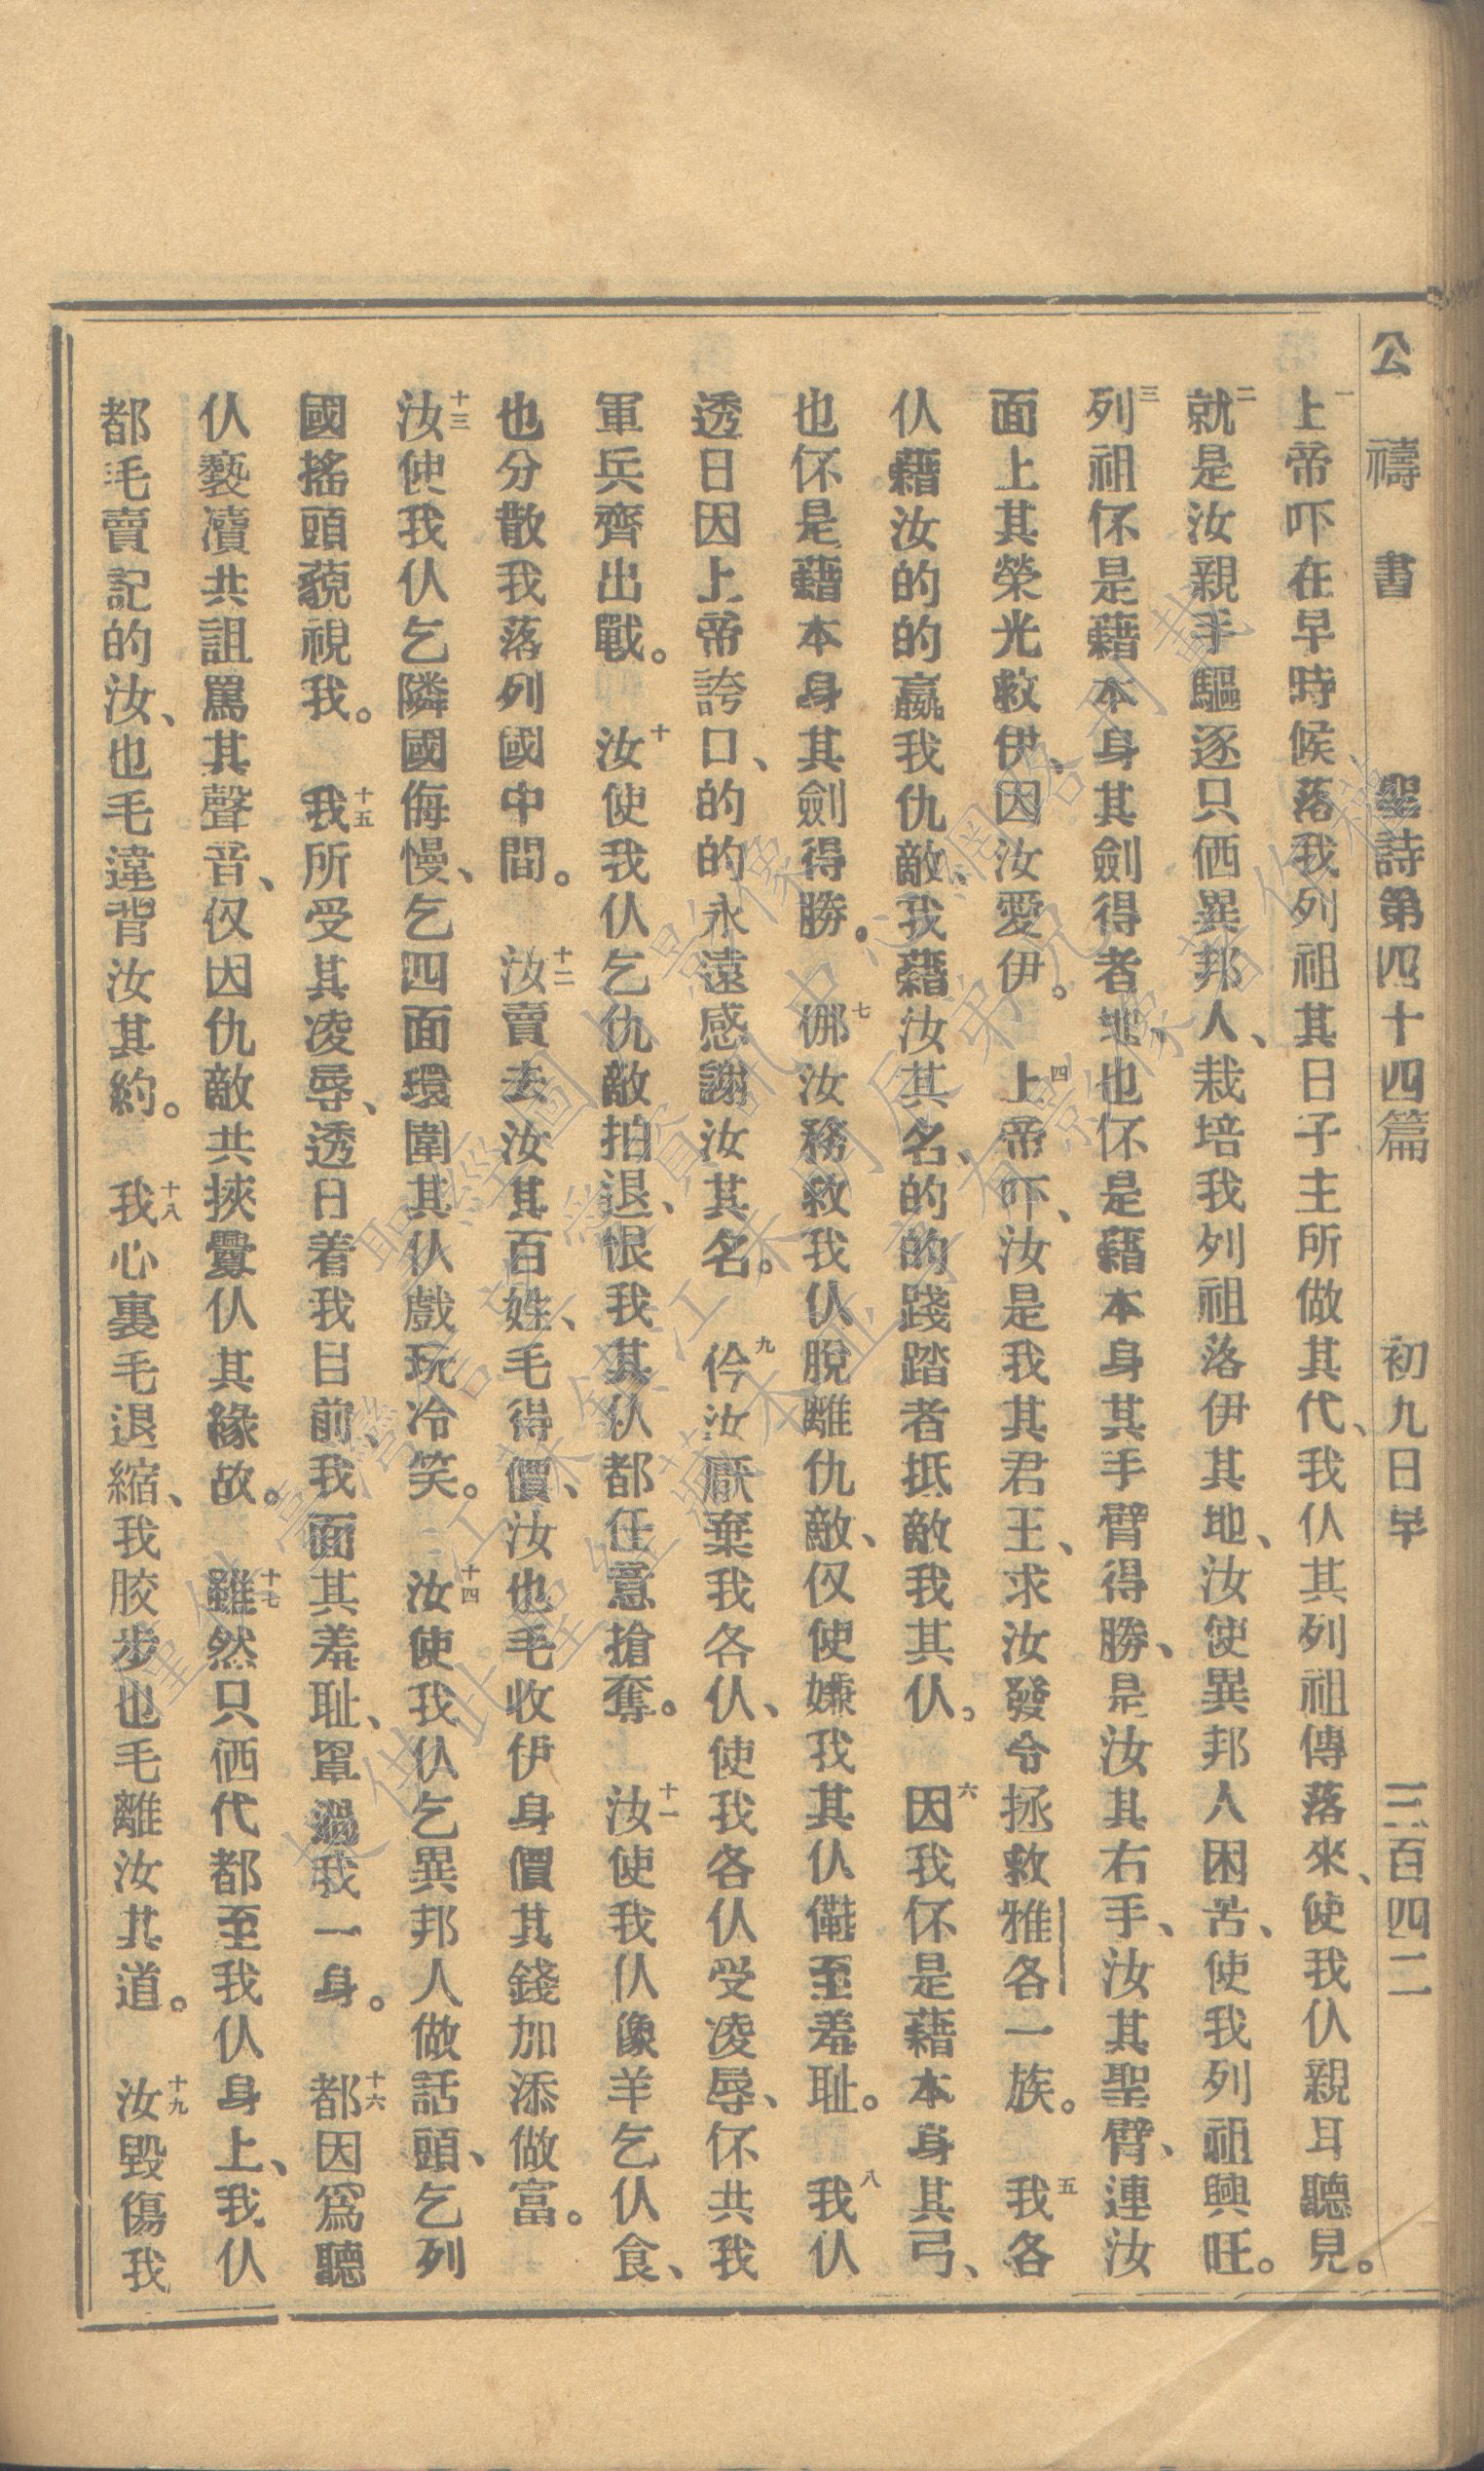 公禱書　聖詩第四十四篇　初九日早　三百四二
一上帝吓在早時候落我列祖其日子主所做其代、我仈其列祖傳落來、使我仈親耳聽見。
二就是汝親手驅逐只㑚異邦人、栽培我列祖落伊其地、汝使異邦人困苦、使我列祖興旺。
三列祖伓是藉本身其劍得者地、也伓是藉本身其手臂得勝、是汝其右手、汝其聖臂、連汝
面上其榮光救伊、因汝愛伊。四上帝吓、汝是我其君王、求汝發令拯救雅各一族。五我各
仈藉汝的的贏我仇敵、我藉汝其名、的的踐踏者抵敵我其仈。六因我伓是藉本身其弓、
也伓是藉本身其劍得勝。七㑚汝務救我仈脫離仇敵、仅使嫌我其仈儺至羞恥。八我仈
透日因上帝誇口、的的永遠感謝汝其名。九仱汝厭棄我各仈、使我各仈受凌辱、伓共我
軍兵齊出戰。十汝使我仈乞仇敵拍退、恨我其仈都任意搶奪。十一汝使我仈像羊乞仈食、
也分散我落列國中間。十二汝賣去汝其百姓、毛得價、汝也毛收伊身價其錢加添做富。
十三汝使我仈乞隣國侮慢、乞四面環圍其仈戲玩冷笑。十四汝使我仈乞異邦人做話頭、乞列
國搖頭藐視我。十五我所受其凌辱、透日着我目前、我面其羞恥、罩過我一身。十六都因爲聽
仈褻瀆共詛罵其聲音、仅因仇敵共挾釁仈其緣故。十七雖然只㑚代都至我仈身上、我仈
都毛賣記的汝、也毛違背汝其約。十八我心裏毛退縮、我胶步也毛離汝其道。十九汝毀傷我